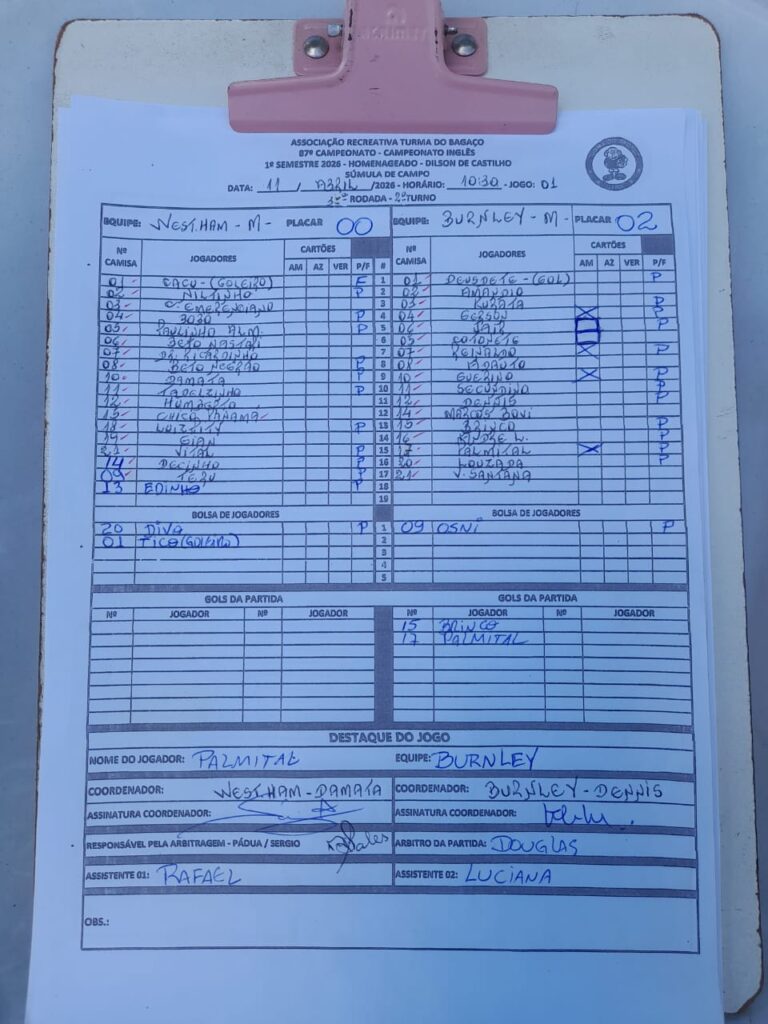 ASSOCIAÇÃO RECREATIVA TURMA DO BAGAÇO
87º CAMPEONATO - CAMPEONATO INGLÊS
1º SEMESTRE 2026 - HOMENAGEADO - DILSON DE CASTILHO
SÚMULA DE CAMPO
DATA: 11 / ABRIL /2026 - HORÁRIO: 10:30 - JOGO: 01
RODADA - 2º TURNO
EQUIPE: WEST.HAM - M - PLACAR 00 EQUIPE: BURNLEY - M - PLACAR 02
Nº CAMISA JOGADORES CARTÕES AM AZ VER P/F # Nº CAMISA JOGADORES CARTÕES AM AZ VER P/F
01 CACO - (GOLEIRO) F 1 01 DEUSDETE - (GOL) P
02 NILTINHO P 2 02 AMANDIO
03 C. EMERENCIANO 3 03 KURATA P
04 3030 P 4 04 GERSON X P
05 PAULINHO ALM. P 5 06 JAIR P
06 BETO NASTARI 6 05 COTONETE
07 DR. RICARDINHO 7 07 REINALDO X P
08 BETO NEGRÃO P 8 08
10 DAMATA P 9 10 GUERINO X P
11 P 10 11 SECUNDINO P
12 11 12 DENNIS P
15 CHICO PANAMA 12 14 MARCOS BOVI
18 P 13 15 BRINCO P
19 GIAN 14 16 ANDRE L. P
21 VITAL P 15 17 PALMITAL X P
14 DECINHO P 16 20 LOUZADA P
09 P 17 21 V. SANTANA
13 EDINHO P 18
19
BOLSA DE JOGADORES BOLSA DE JOGADORES
20 DIVA P 1 09 OSNI P
01 TICO (GOLEIRO) 2
3
4
5
GOLS DA PARTIDA GOLS DA PARTIDA
Nº JOGADOR Nº JOGADOR Nº JOGADOR Nº JOGADOR
15 BRINCO
17 PALMITAL
DESTAQUE DO JOGO
NOME DO JOGADOR: PALMITAL EQUIPE: BURNLEY
COORDENADOR: WEST.HAM - DAMATA COORDENADOR: BURNLEY - DENNIS
ASSINATURA COORDENADOR: ASSINATURA COORDENADOR:
RESPONSÁVEL PELA ARBITRAGEM - PÁDUA / SERGIO ARBITRO DA PARTIDA: DOUGLAS
ASSISTENTE 01: RAFAEL ASSISTENTE 02: LUCIANA
OBS.: